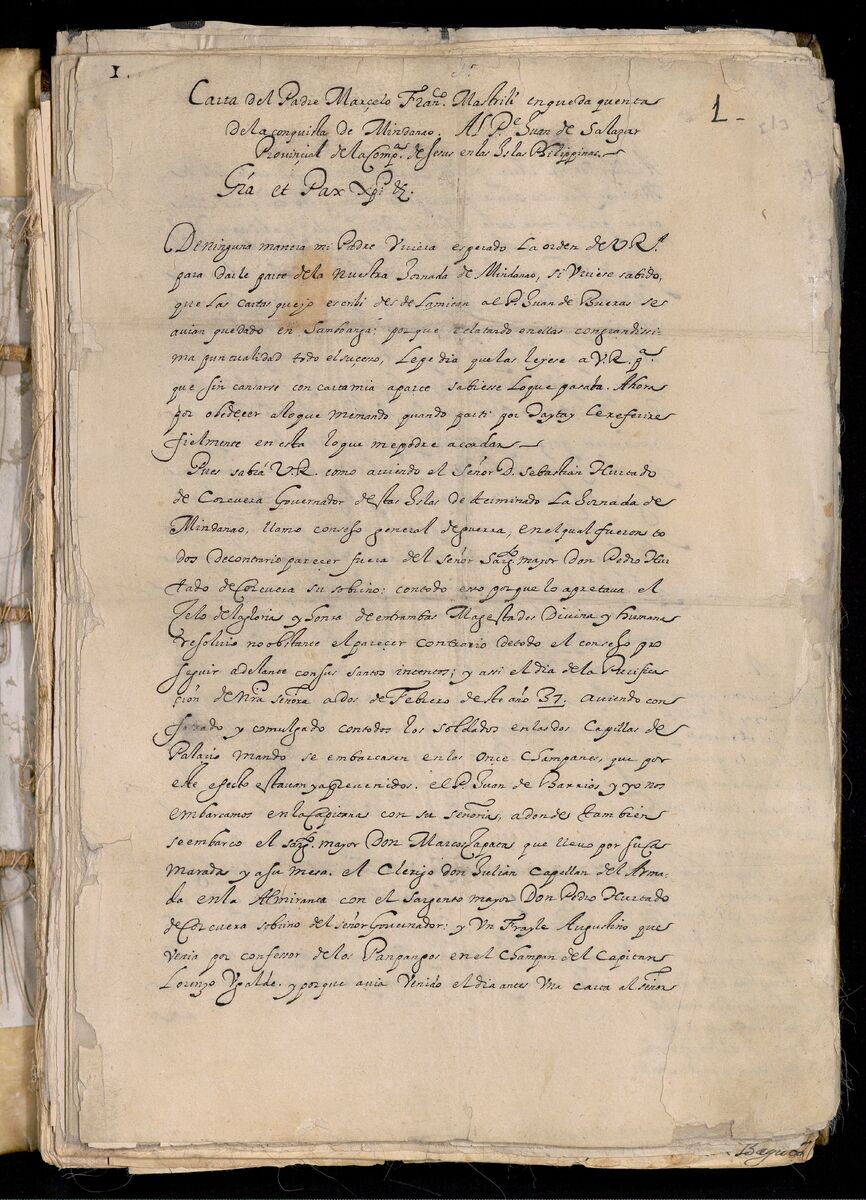 1.
1-
Carta del Padre Marçelo Franco. Mastrili en que da quenta
de la conquista de Mindanao. Al Pe. Juan de Salazar
Provinçial de la Compa. de Jesus en las Islas Philippinas.
Gra et Pax Xpi &.
De ninguna manera mi Padre Uviera esperado La orden de V Ra.
para darle parte de la nuestra Jornada de Mindanao, si Uviese sabido,
que Las cartas que yo escribi desde Lamitan al P. Juan de Bueras se
avian quedado en Sambanga; porque relatando en ellas con grandissi
ma puntualidad todo el suçesso, Le pedia que las leyese a V. R. pa.
que sin cansarse con carta mia aparte sabiesse Lo que pasaba. Ahora
por obedeçer a lo que me mando quando parti por Taytay Le referire
fielmente en esta lo que me podre acordar
Pues sabrá V. R. como aviendo el Señor D. Sebastian Hurtado
de Corcuera Governador destas Islas determinado La Jornada de
Mindanao, llamo consejo general de guerra, en el qual fueron to
dos de contrario parecer fuera del señor Sargo. mayor Don Pedro Hur
tado de Corcuera su sobrino: con todo esso porque lo apretava el
Zelo de la gloria y honra de entrambas Magestades Divina y humana
resolvio no obstante el pareçer contrario de todo el consejo pro
seguir adelante con sus santos intentos; y assi el dia de la Purifica
çion de nra señora a dos de Febrero deste año 37. aviendo con
fesado y comulgado con todos los soldados en las dos Capillas de
Palacio mando se embarcasen en los Once Champanes, que por
este efecto estavan ya prevenidos. el P. Juan de Barrios, y yo nos
embarcamos en la Capitana con su señoria, a donde tambien
se embarco el sargo. mayor Don Marcos Zapata que llevo por su Ca
marada y a su mesa. el Clerigo don Julian Capellan del Arma
da en la Almiranta con el Sargento mayor Don Pedro Hurtado
de Corcuera sobrino del señor Governador: y Un Frayle Augustino que
Venia por confessor de los Panpangos en el Champan del Capitan
Lorenzo Ugalde. y porque avia Venido el dia antes Una carta al señor